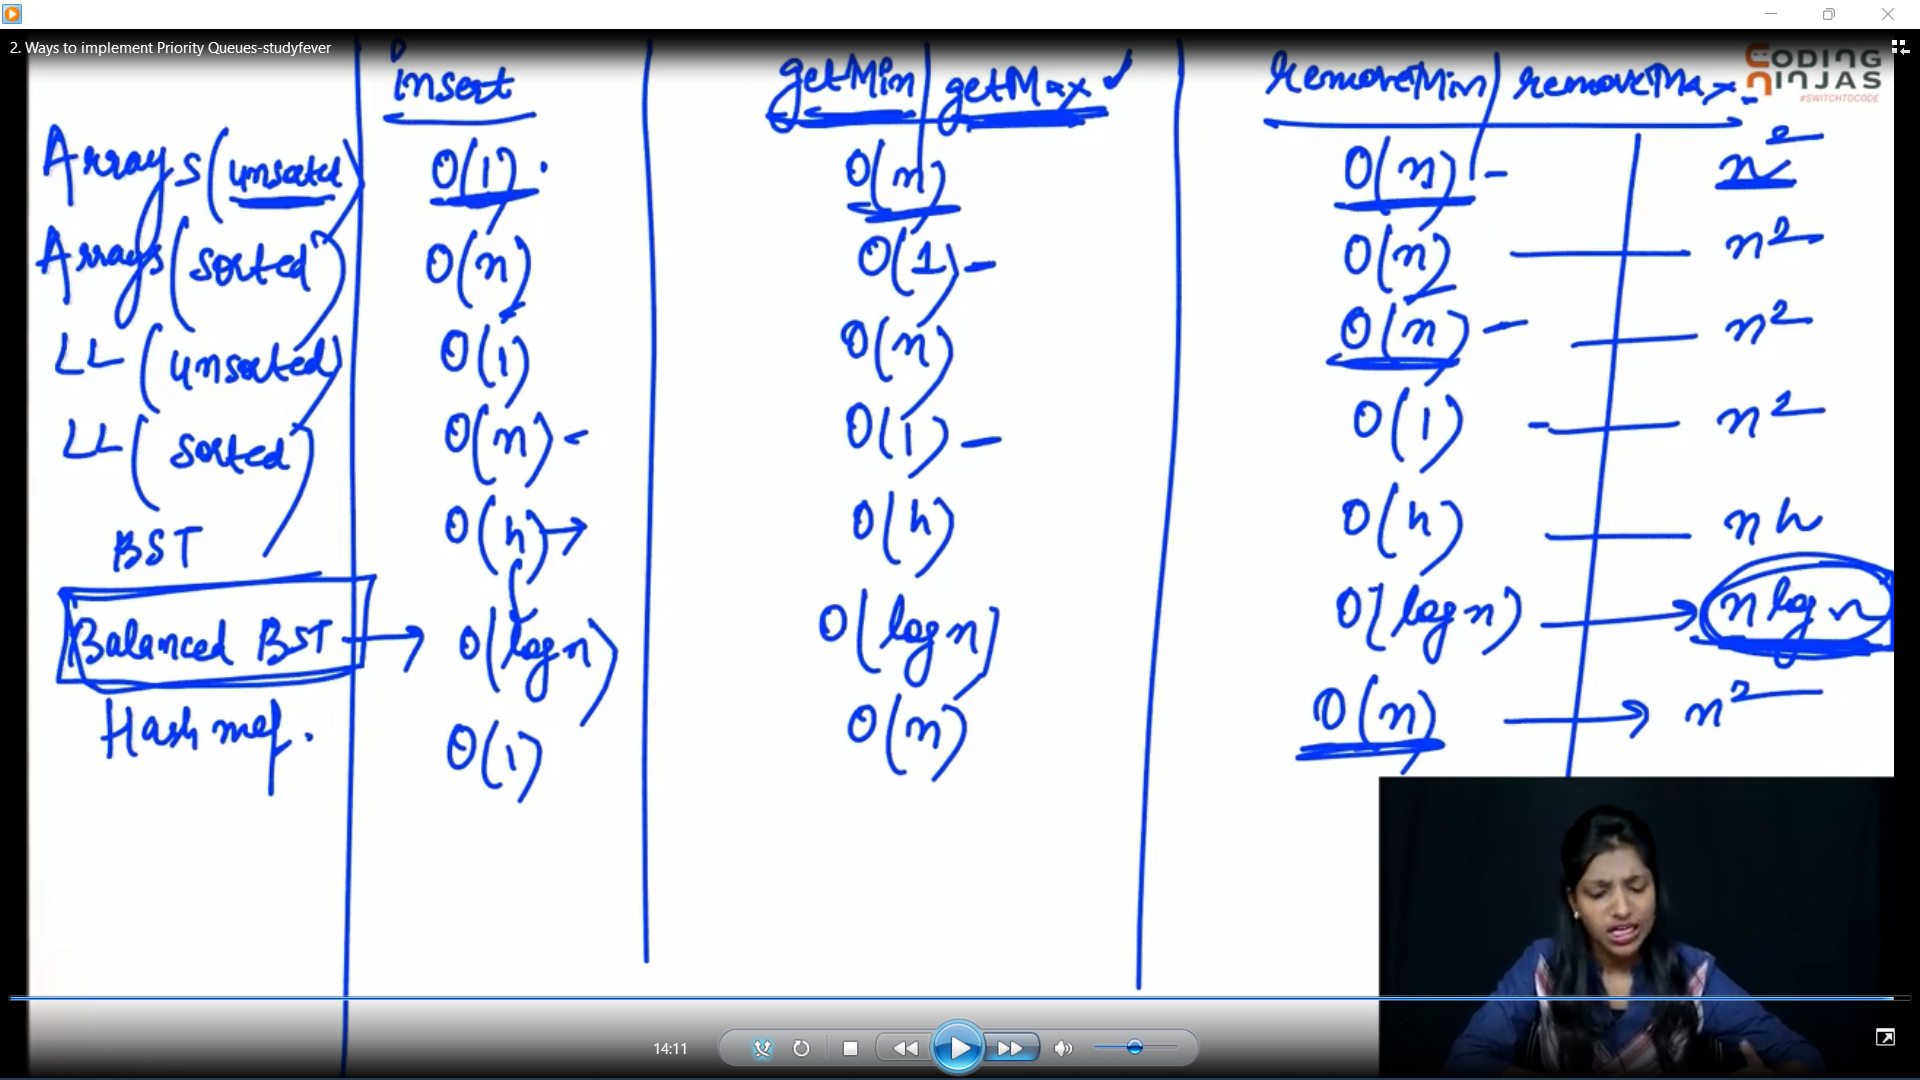 2. Ways to implement Priority Queues-studyfever
CODING NINJAS
#SWITCHTOCODE
insert getMin getMax ✓ removeMin removeMax
Arrays (unsorted) O(1) O(n) O(n) n²
Arrays (sorted) O(n) O(1) O(n) n²
LL (unsorted) O(1) O(n) O(n) n²
LL (sorted) O(n) O(1) O(1) n²
BST O(h) → O(h) O(h) nh
Balanced BST → O(log n) O(log n) O(log n) → n log n
Hash map. O(1) O(n) O(n) → n²
14:11